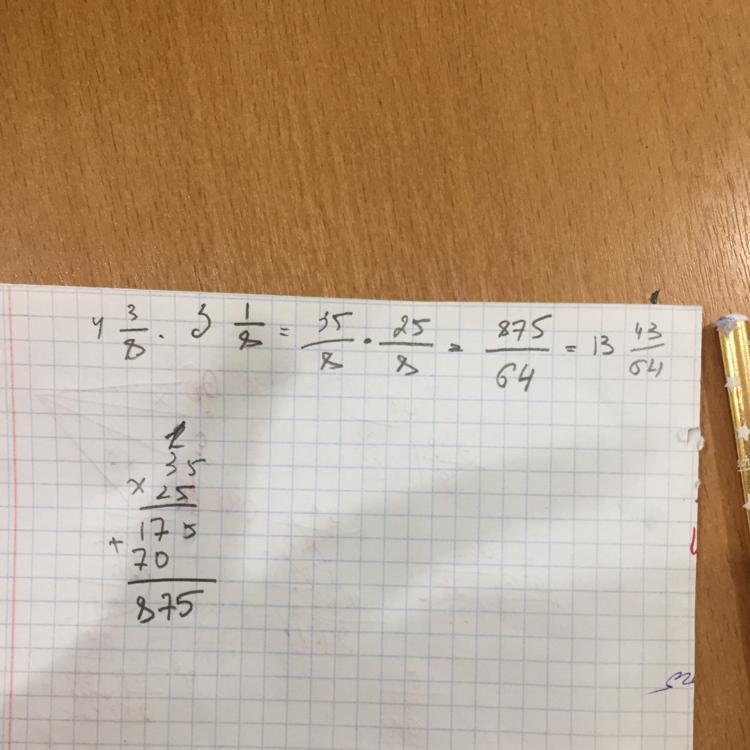 4 3/8 · 3 1/8 = 35/8 · 25/8 = 875/64 = 13 43/64
2
35
× 25
175
+ 70
875